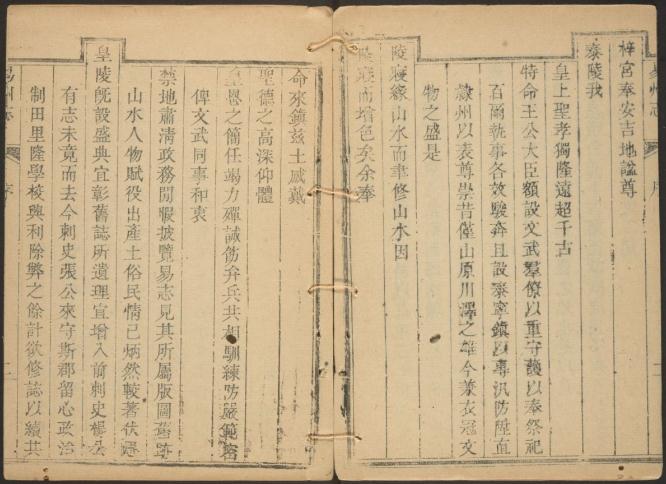 梓宮奉安吉地謚尊
泰陵我
皇上聖孝獨隆遠超千古
特命王公大臣額設文武羣僚以重守護以奉祭祀
百爾執事各效駿奔且設泰寧鎮以專汛防陞直
隸州以表尊崇昔僅山原川澤之雄今兼衣冠文
物之盛是
陵寢緣山水而聿修山水因
陵寢而增色矣余奉
命來鎮茲土感戴
聖德之高深仰體
皇恩之簡任竭力殫誠飭弁兵共相馴練防嚴範密
俾文武同事和衷
禁地肅清政務閒暇披覽易志見其所屬版圖舊跡
山水人物賦役出產土俗民情已炳然較著伏
皇陵旣設盛典宜彰舊誌所遺理宜增入前刺史楊公
有志未竟而去今刺史張公來守斯郡留心政治
制田里隆學校興利除弊之餘計欲修誌以續其
易州志
序
二